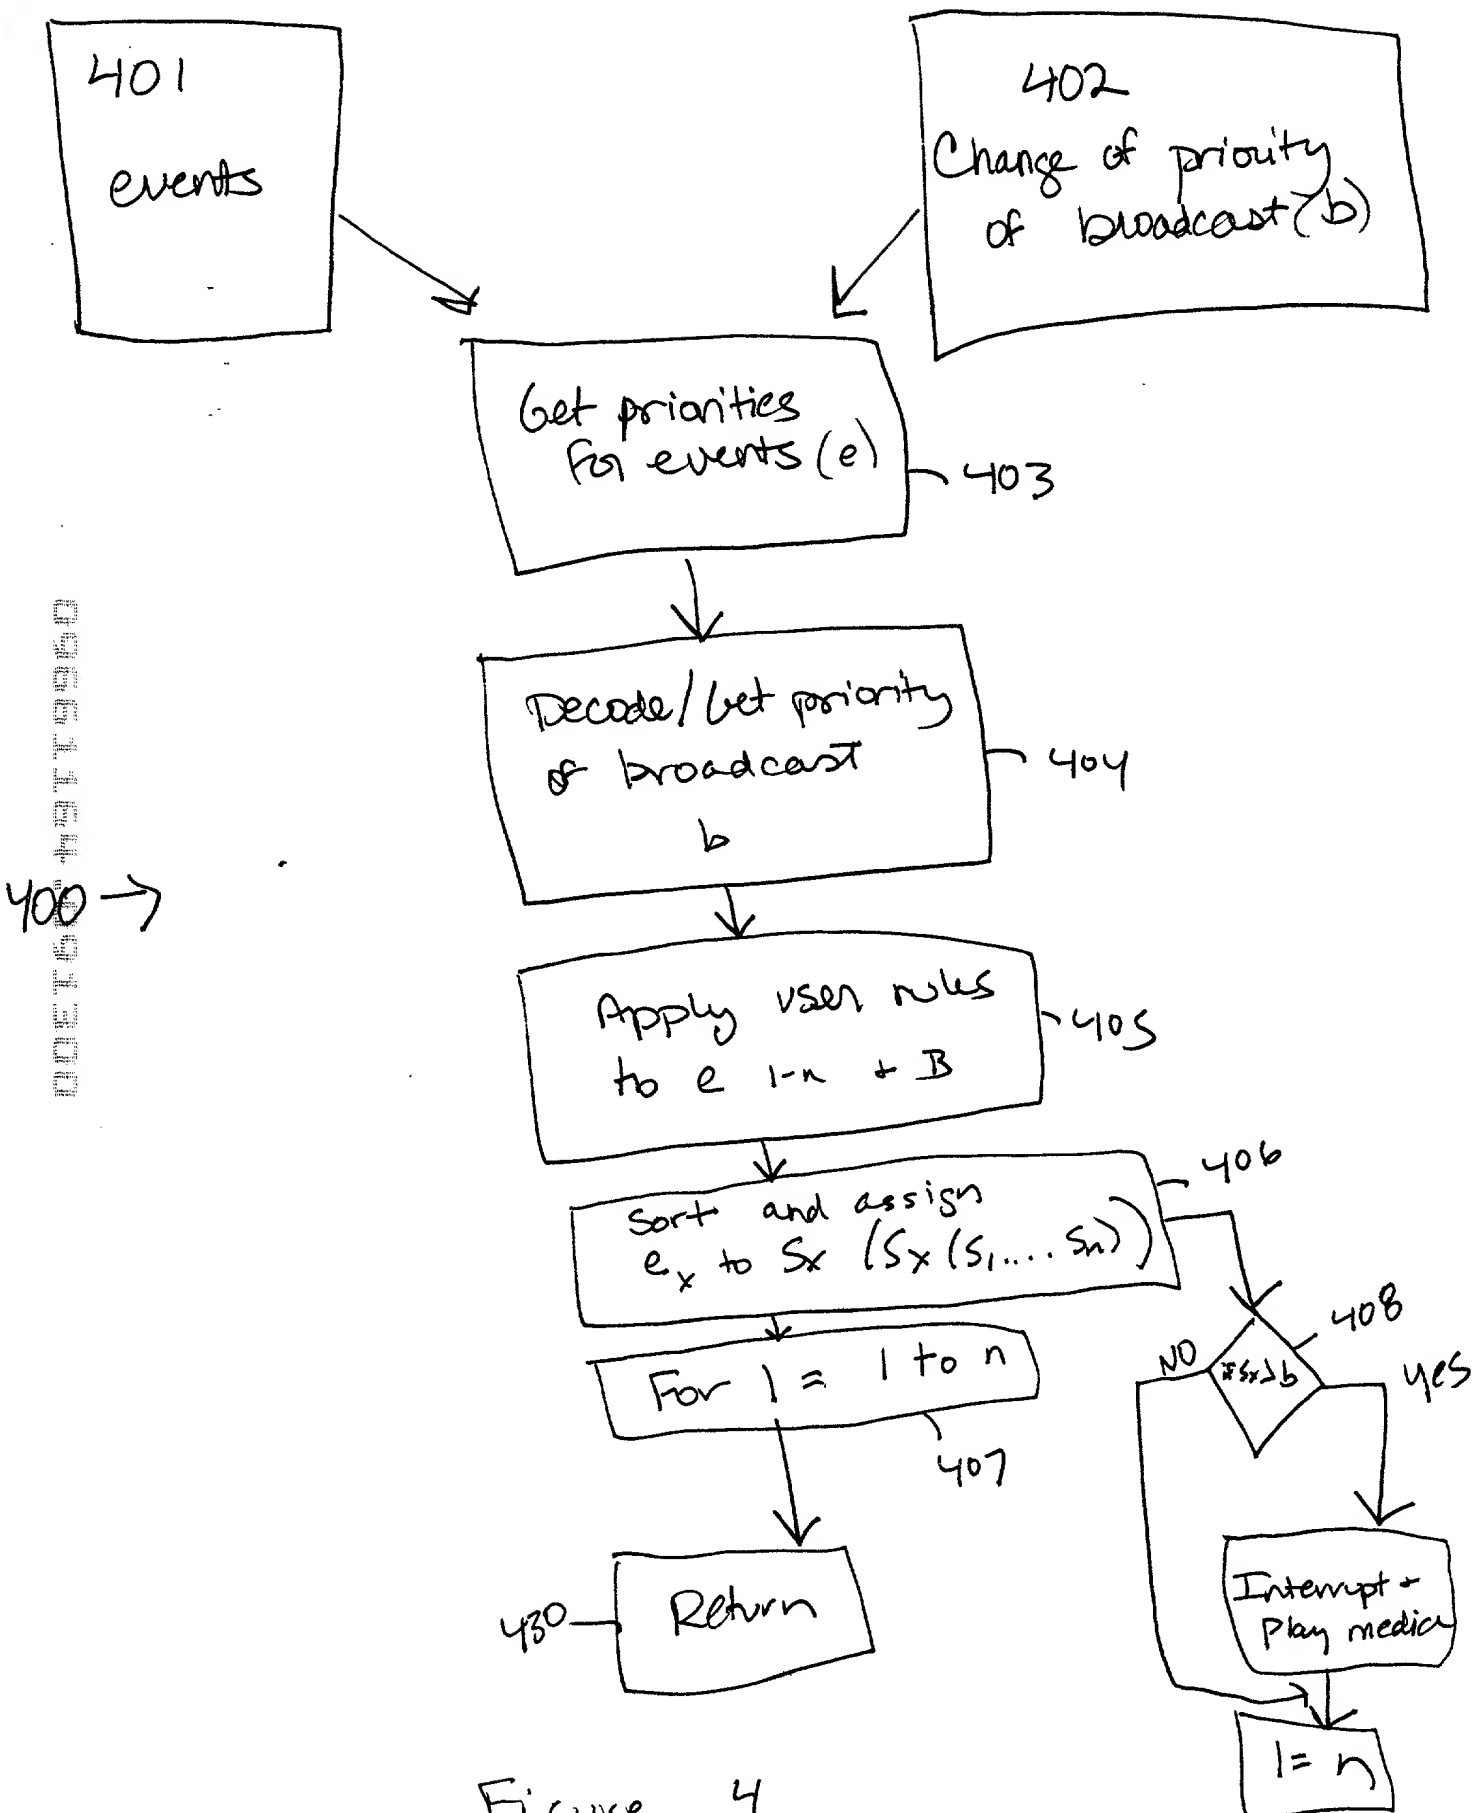 401
events
402
Change of priority
of broadcast (b)
Get priorities
for events (e)
403
Decode/Get priority
of broadcast
b
404
400
Apply user rules
to e 1-n + B
405
406
Sort and assign
e x to Sx (Sx (S1.... Sn))
408
NO
if Sx > b
yes
For 1 = 1 to n
407
Interrupt +
Play media
Return
430
1 = n
Figure 4